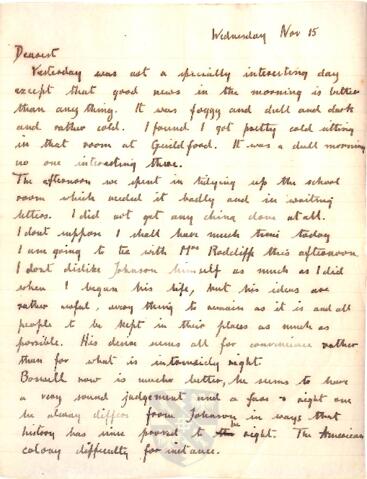 Wednesday Nov 15
Dearest
Yesterday was not a specially interesting day
except that good news in the morning is better
than any thing. It was foggy and dull and dark
and rather cold. I found I got pretty cold sitting
in that room at Guildford. It was a dull morning
no one interesting there.
The afternoon we spent in tidying up the school
room which needed it badly and in writing
letters. I did not get any china done at all.
I dont suppose I shall have much time today
I am going to tea with Mrs Radcliffe this afternoon.
I dont dislike Johnson himself as much as I did
when I began his life, but his ideas are
rather awful, every thing to remain as it is and all
people to be kept in their places as much as
possible. His desire seems all for convenience rather
than for what is intrinsically right.
Boswell now is much better, he seems to have
a very sound judgement and a fair & right one
he always differs from Johnson in ways that
history has since proved to be right. The American
colony difficulty for instance.